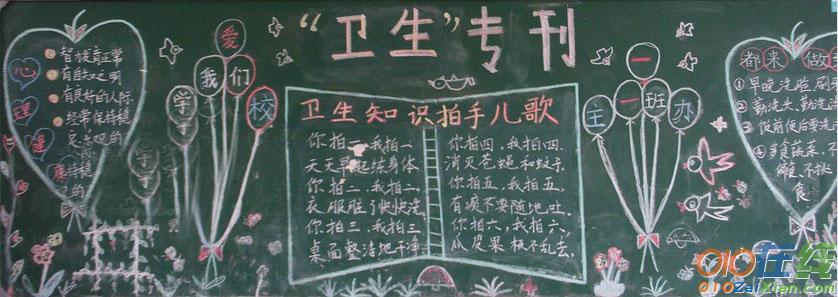 “卫生”专刊
爱
我们
学校
心
理
智力发育正常
有自知之明
有良好的人际
经常保持稳
卫生知识拍手儿歌
你拍一,我拍一,
天天早起练身体
你拍二,我拍二,
衣服脏了快快洗
你拍三,我拍三,
桌面整洁地干净
你拍四,我拍四,
消灭苍蝇和蚊子
你拍五,我拍五,
有痰不要随地吐.
你拍六,我拍六,
瓜皮果核不乱丢
一
主一班办
都来做
①早晚洗脸刷
②勤洗头,勤洗
③饭前便后要洗
④多食蔬菜,不
食
010在线
010ZaiXian.com